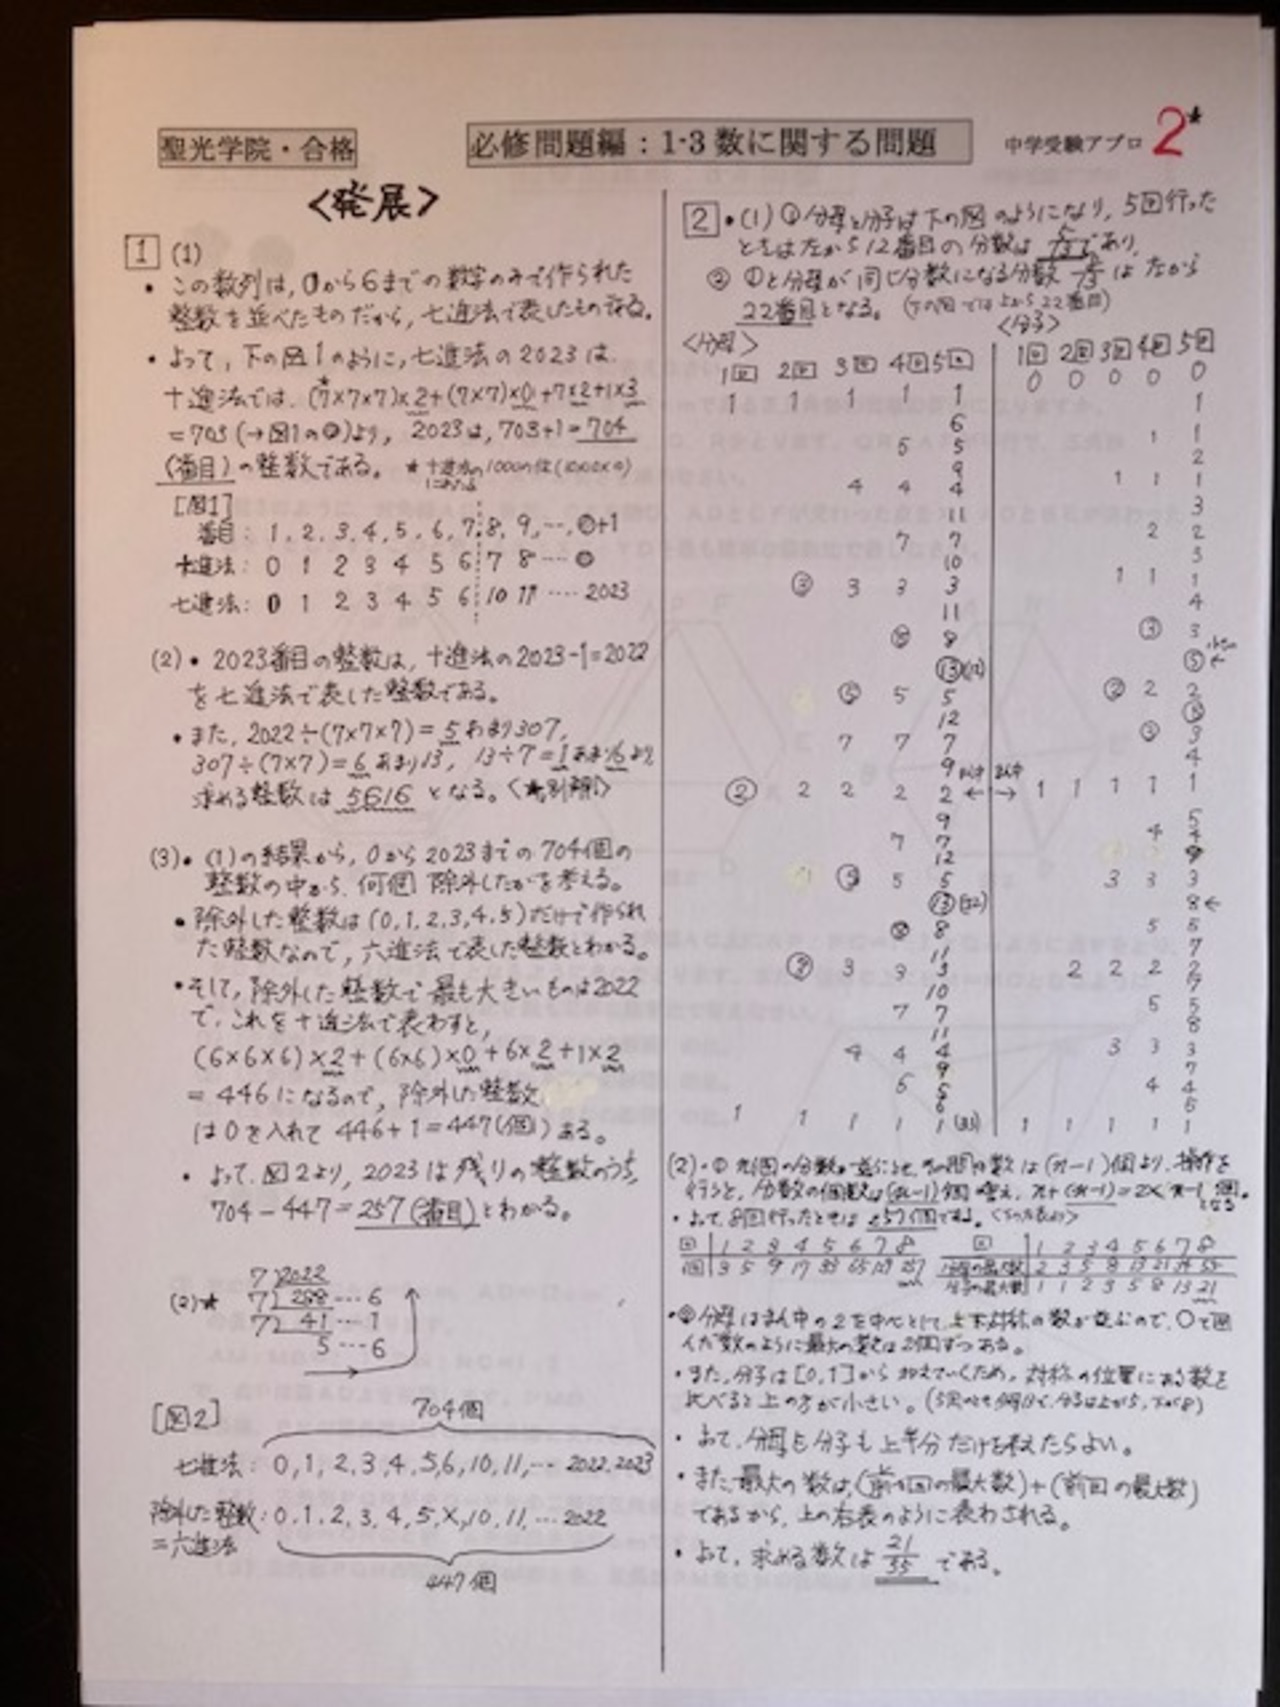 聖光学院・合格
必修問題編：1-3 数に関する問題
中学受験アプロ 2*
<発展>
1 (1)
・この数列は,0から6までの数字のみで作られた
整数を並べたものだから,七進法で表したものである。
・よって,下の図1のように,七進法の2023は,
十進法では,(7×7×7)×2+(7×7)×0+7×2+1×3
=703(→図1の◎)より, 2023は,703+1=704
(番目)の整数である。
[図1]
番目：1, 2, 3, 4, 5, 6, 7, 8, 9, …, ◎+1
十進法：0 1 2 3 4 5 6 7 8 … ◎
七進法：0 1 2 3 4 5 6 10 11 …. 2023
(2)・2023番目の整数は,十進法の2023-1=2022
を七進法で表した整数である。
・また,2022÷(7×7×7)=5あまり307,
307÷(7×7)=6あまり13, 13÷7=1あまり6より,
求める整数は 5616 となる。<★別解>
(3)・(1)の結果から,0から2023までの704個の
整数の中から,何個除外したかを考える。
・除外した整数は(0,1,2,3,4,5)だけで作られ
た整数なので,六進法で表した整数とわかる。
・そして,除外した整数で最も大きいものは2022
で,これを十進法で表わすと,
(6×6×6)×2+(6×6)×0+6×2+1×2
=446になるので,除外した整数
は0を入れて446+1=447(個)ある。
・よって,図2より,2023は残りの整数のうち,
704-447=257(番目)とわかる。
(2)★
7)2022
7) 288 … 6
7) 41 … 1
5 … 6
[図2]
704個
七進法：0,1,2,3,4,5,6,10,11,… 2022,2023
除外した整数：0,1,2,3,4,5,×,10,11,… 2022
=六進法
447個
2・(1)①分母と分子は下の図のようになり,5回行った
ときは左から12番目の分数は 5/13であり,
② ①と分母が同じ分数になる分数 8/13 は左から
22番目となる。(下の図では上から22番目)
<分母> <分子>
1回 2回 3回 4回 5回 1回 2回 3回 4回 5回
0 0 0 0 0
1 1 1 1 1
1
6
5 5 1 1
9 2
4 4 4 1 1 1
11 3
7 7 2 2
10 3
③ 3 3 3 1 1 1
11 4
⑧ 8 ③ 3
⑬(12) ⑤←
⑤ 5 5 ② 2 2
12
7 7 7 3
9 4
② 2 2 2 2 ← → 1 1 1 1 1
9 5
7 7 4 4
12
⑤ 5 5 3 3 3
⑬(22) 8←
⑧ 8 5 5
11 7
③ 3 3 3 2 2 2 2
10 7
7 7 5 5
11 8
4 4 4 3 3 3
9 7
4 4
6 5
1 1 1 1 1(33) 1 1 1 1 1
行うと,分数の個数は(n-1)個増え,n+(n-1)=2×n-1 個
となる
・よって,8回行ったときは 257個である。<下の左表より>
回 1 2 3 4 5 6 7 8
個 3 5 9 17 33 65 129 257
回 1 2 3 4 5 6 7 8
分母の最大数 2 3 5 8 13 21 34 55
分子の最大数 1 1 2 3 5 8 13 21
・②分母はまん中の2を中心として,上下対称の数が並ぶので,○で囲
んだ数のように最大の数は2個ずつある。
・また,分子は[0,1]から加えていくため,対称の位置にある数を
比べると上の方が小さい。
・よって,分母も分子も上半分だけを考えたらよい。
・また,最大の数は,(前々回の最大数)+(前回の最大数)
であるから,上の右表のように表わされる。
・よって,求める数は 21/55 である。